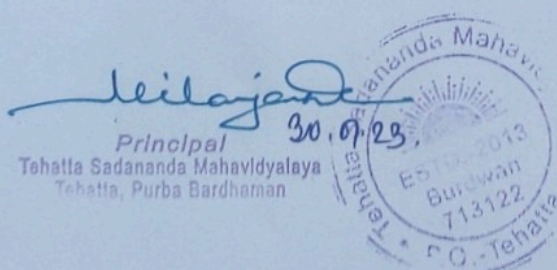 30.09.23.
Principal
Tehatta Sadananda Mahavidyalaya
Tehatta, Purba Bardhaman
Tehatta Sadananda Mahavi
ESTD.-2013
Burdwan
713122
P.O.-Tehatta